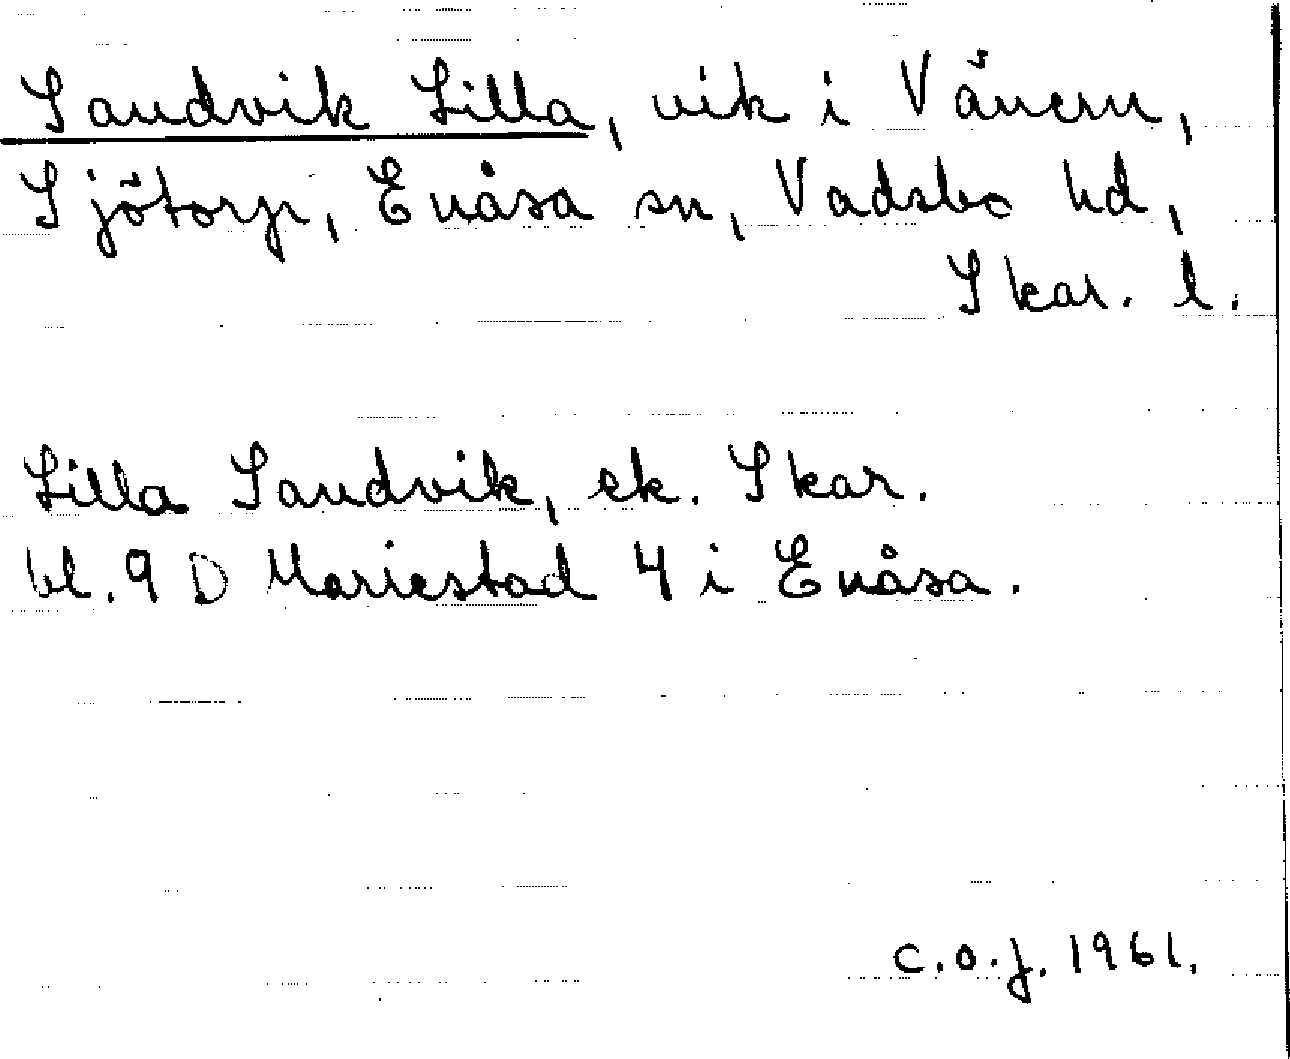 Sandvik Lilla, vik i Vänern,
Sjötorp, Enåsa sn, Vadsbo hd,
Skar. l.
Lilla Sandvik, ek. Skar.
bl. 9 D Mariestad 4 i Enåsa.
C.O.J. 1961.